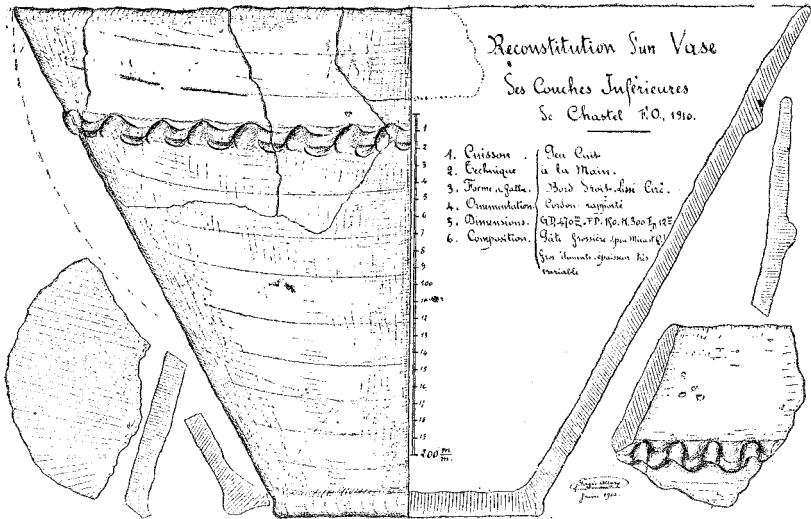 Reconstitution d'un Vase
des Couches Inférieures
de Chastel F.O., 1910.
1. Cuisson . Peu Cuit
2. Technique à la Main.
3. Forme Bord Droit Lissé Ciré.
4. Ornementation Cordon rapporté
5. Dimensions. G.D. 470 F.D. H. 300 Ep 12
6. Composition. Pâte Grossière (peu
Gros éléments épaisseur très
variable
1
2
3
4
5
6
7
8
9
100
12
13
14
15
16
17
18
19
200 m/m.
Juin 1910.